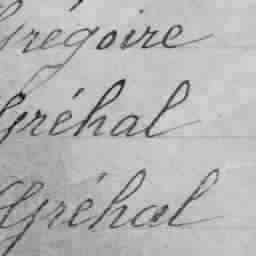 Grégoire
Gréhal
Gréhal